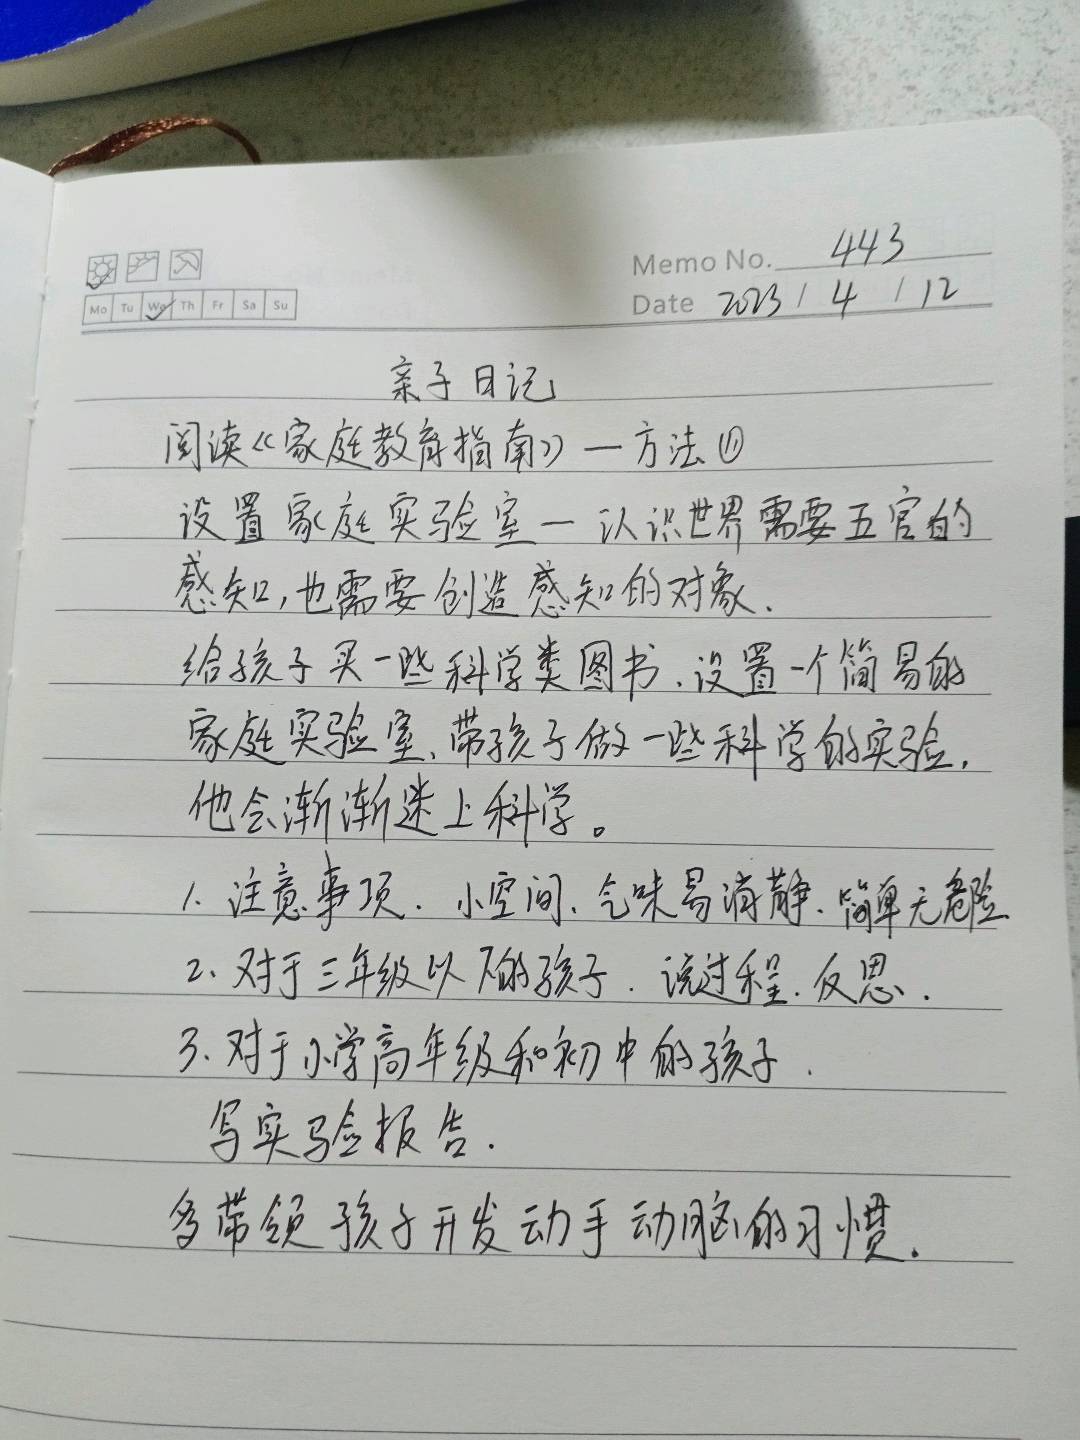 Memo No. 443
Mo Tu We Th Fr Sa Su
Date 2023 / 4 / 12
亲子日记
阅读《家庭教育指南》—方法⑪
设置家庭实验室—认识世界需要五官的
感知,也需要创造感知的对象.
给孩子买一些科学类图书.设置一个简易的
家庭实验室、带孩子做一些科学的实验.
他会渐渐迷上科学。
1. 注意事项. 小空间、气味易消静.简单无危险
2. 对于三年级以下的孩子. 说过程.反思.
3. 对于小学高年级和初中的孩子.
写实验报告.
多带领孩子开发动手动脑的习惯.